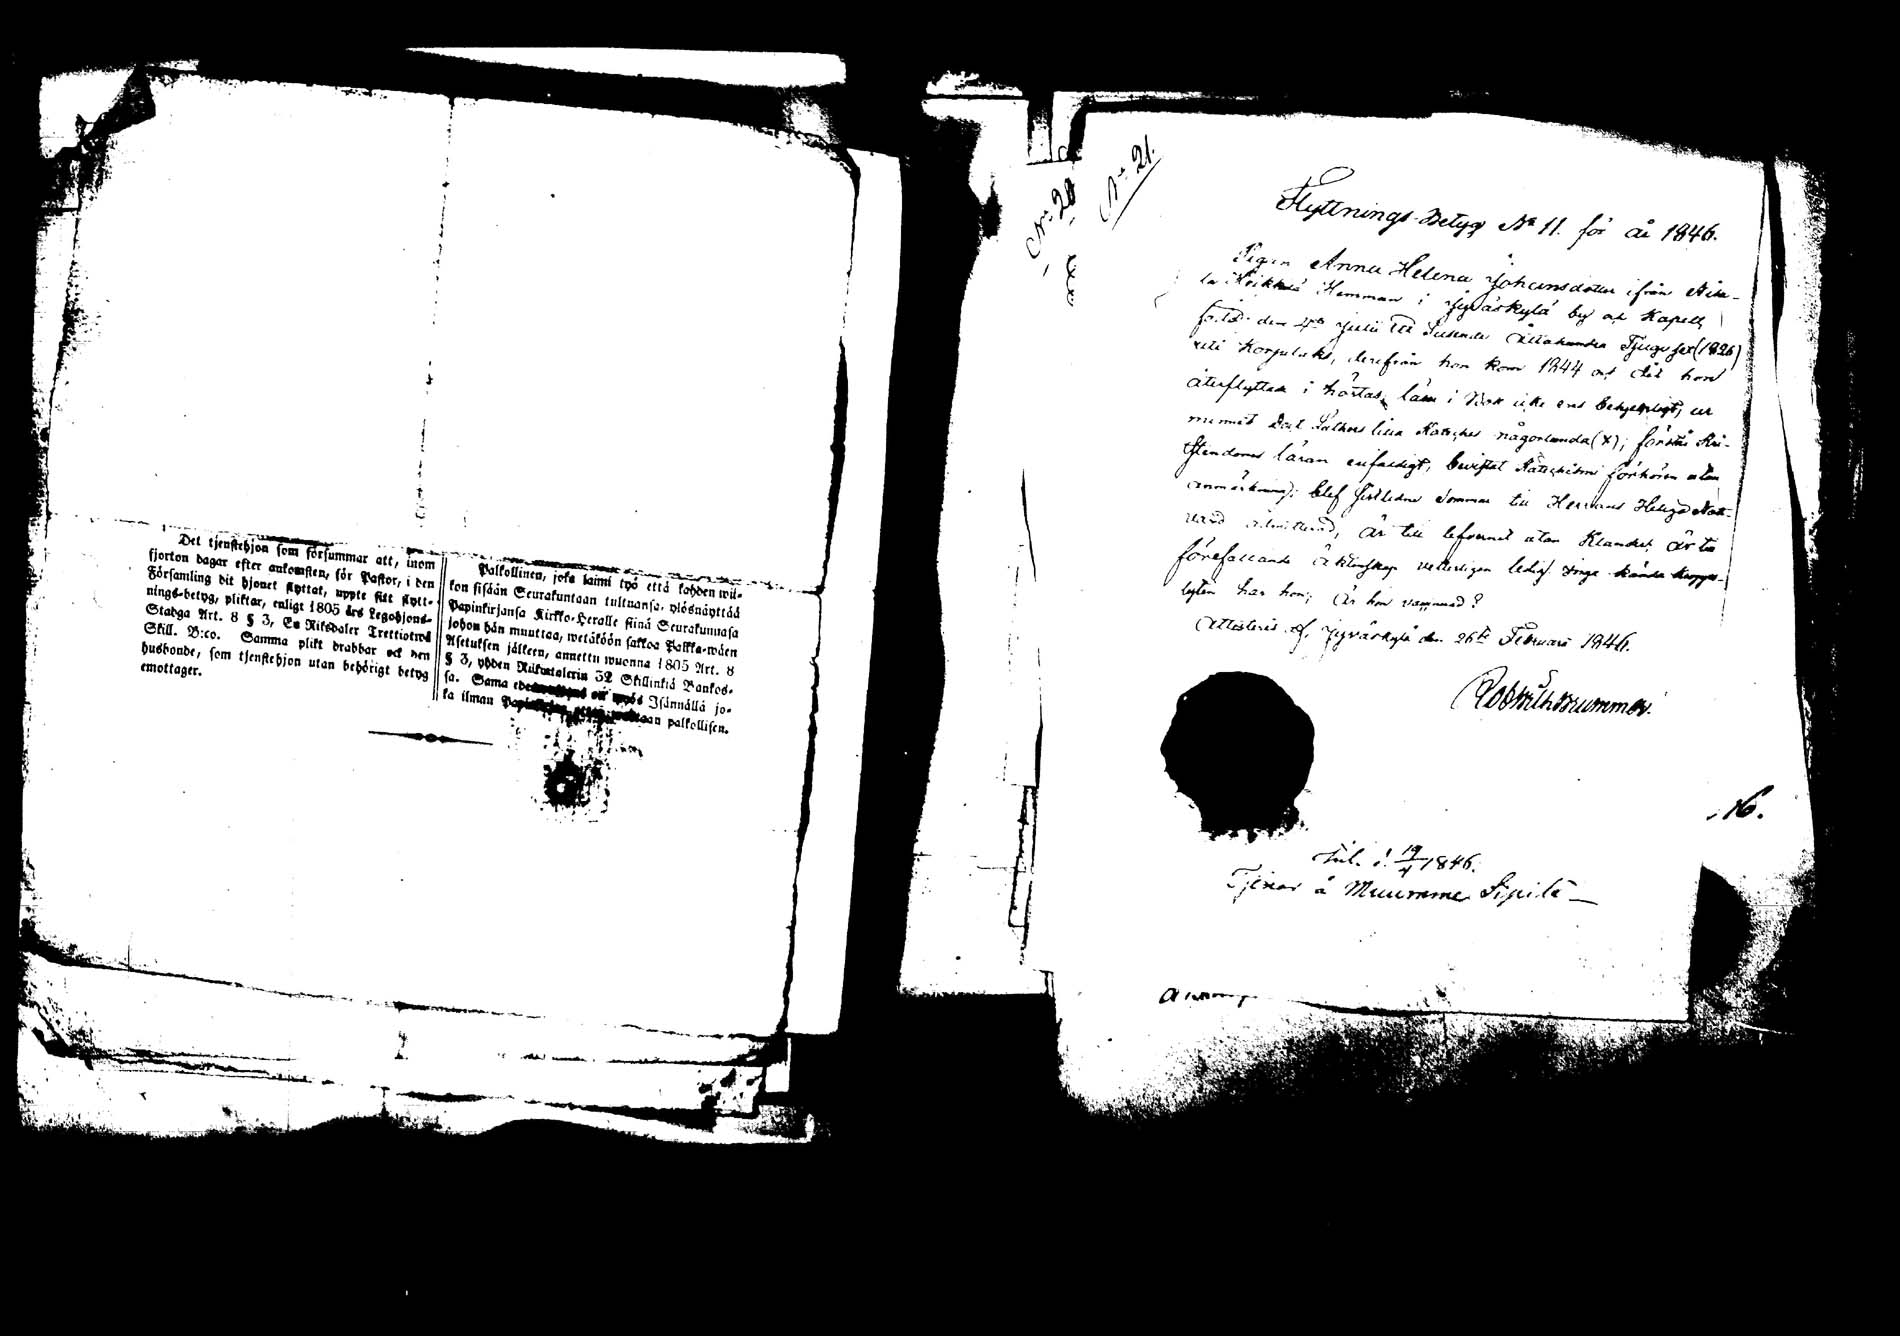 Det tjenstehjon som försummar att, inom
fjorton dagar efter ankomsten, för Pastor, i den
Församling dit hjonet flyttat, uppte sitt flytt-
nings-betyg, pliktar, enligt 1805 års Legohjons-
Stadga Art. 8 § 3, En Riksdaler Trettiotwå
Skill. B:co. Samma plikt drabbar ock den
husbonde, som tjenstehjon utan behörigt betyg
emottager.
Palkollinen, joka laimi lyö että kahden wii-
kon sisään Seurakuntaan tultuansa, ylösnäyttää
Papinkirjansa Kirkko-Heralle siinä Seurakunnasa
johon hän muuttaa, wetäköön sakkoa Palkka-wäen
Asetuksen jälkeen, annettu wuonna 1805 Art. 8
§ 3, yhden Riikintalerin 32 Skillinkiä Bankos-
sa. Sama myös Isännällä jo-
ka ilman palkollisen.
N:o 20
N:o 21.
Flyttnings-Betyg No 11. för år 1846.
Pigan Anna Helena Johansdotter ifrån
Hemman i Jyväskylä by och Kapell,
född den 4de Julii Tusende Åttahundra Tjugusex (1826)
uti Korpilaks, derifrån hon kom 1844 och dit hon
återflyttar i höstas, läser i Bok icke ens begripligt, ur
minnet Doct Luthers lilla Kateches någorlunda (x); förstår Kri-
stendoms läran enfaldigt, bevistat Katechismi förhören utan
anmärkning; blef sistledne Sommar till Herrans Heliga Natt-
vard admitterad, är till lefvernet utan Klander, är till
förefallande Äktenskap veterligen ledig. Inga kända kropps-
lyten har hon; är hon vaccinerad?
Attesteras af, Jyväskylä den 26te Februari 1846.
Rob. Wilh. Brummer.
16.
Inl. d. 19/4 1846.
Tjenar å Muurame Sipilä